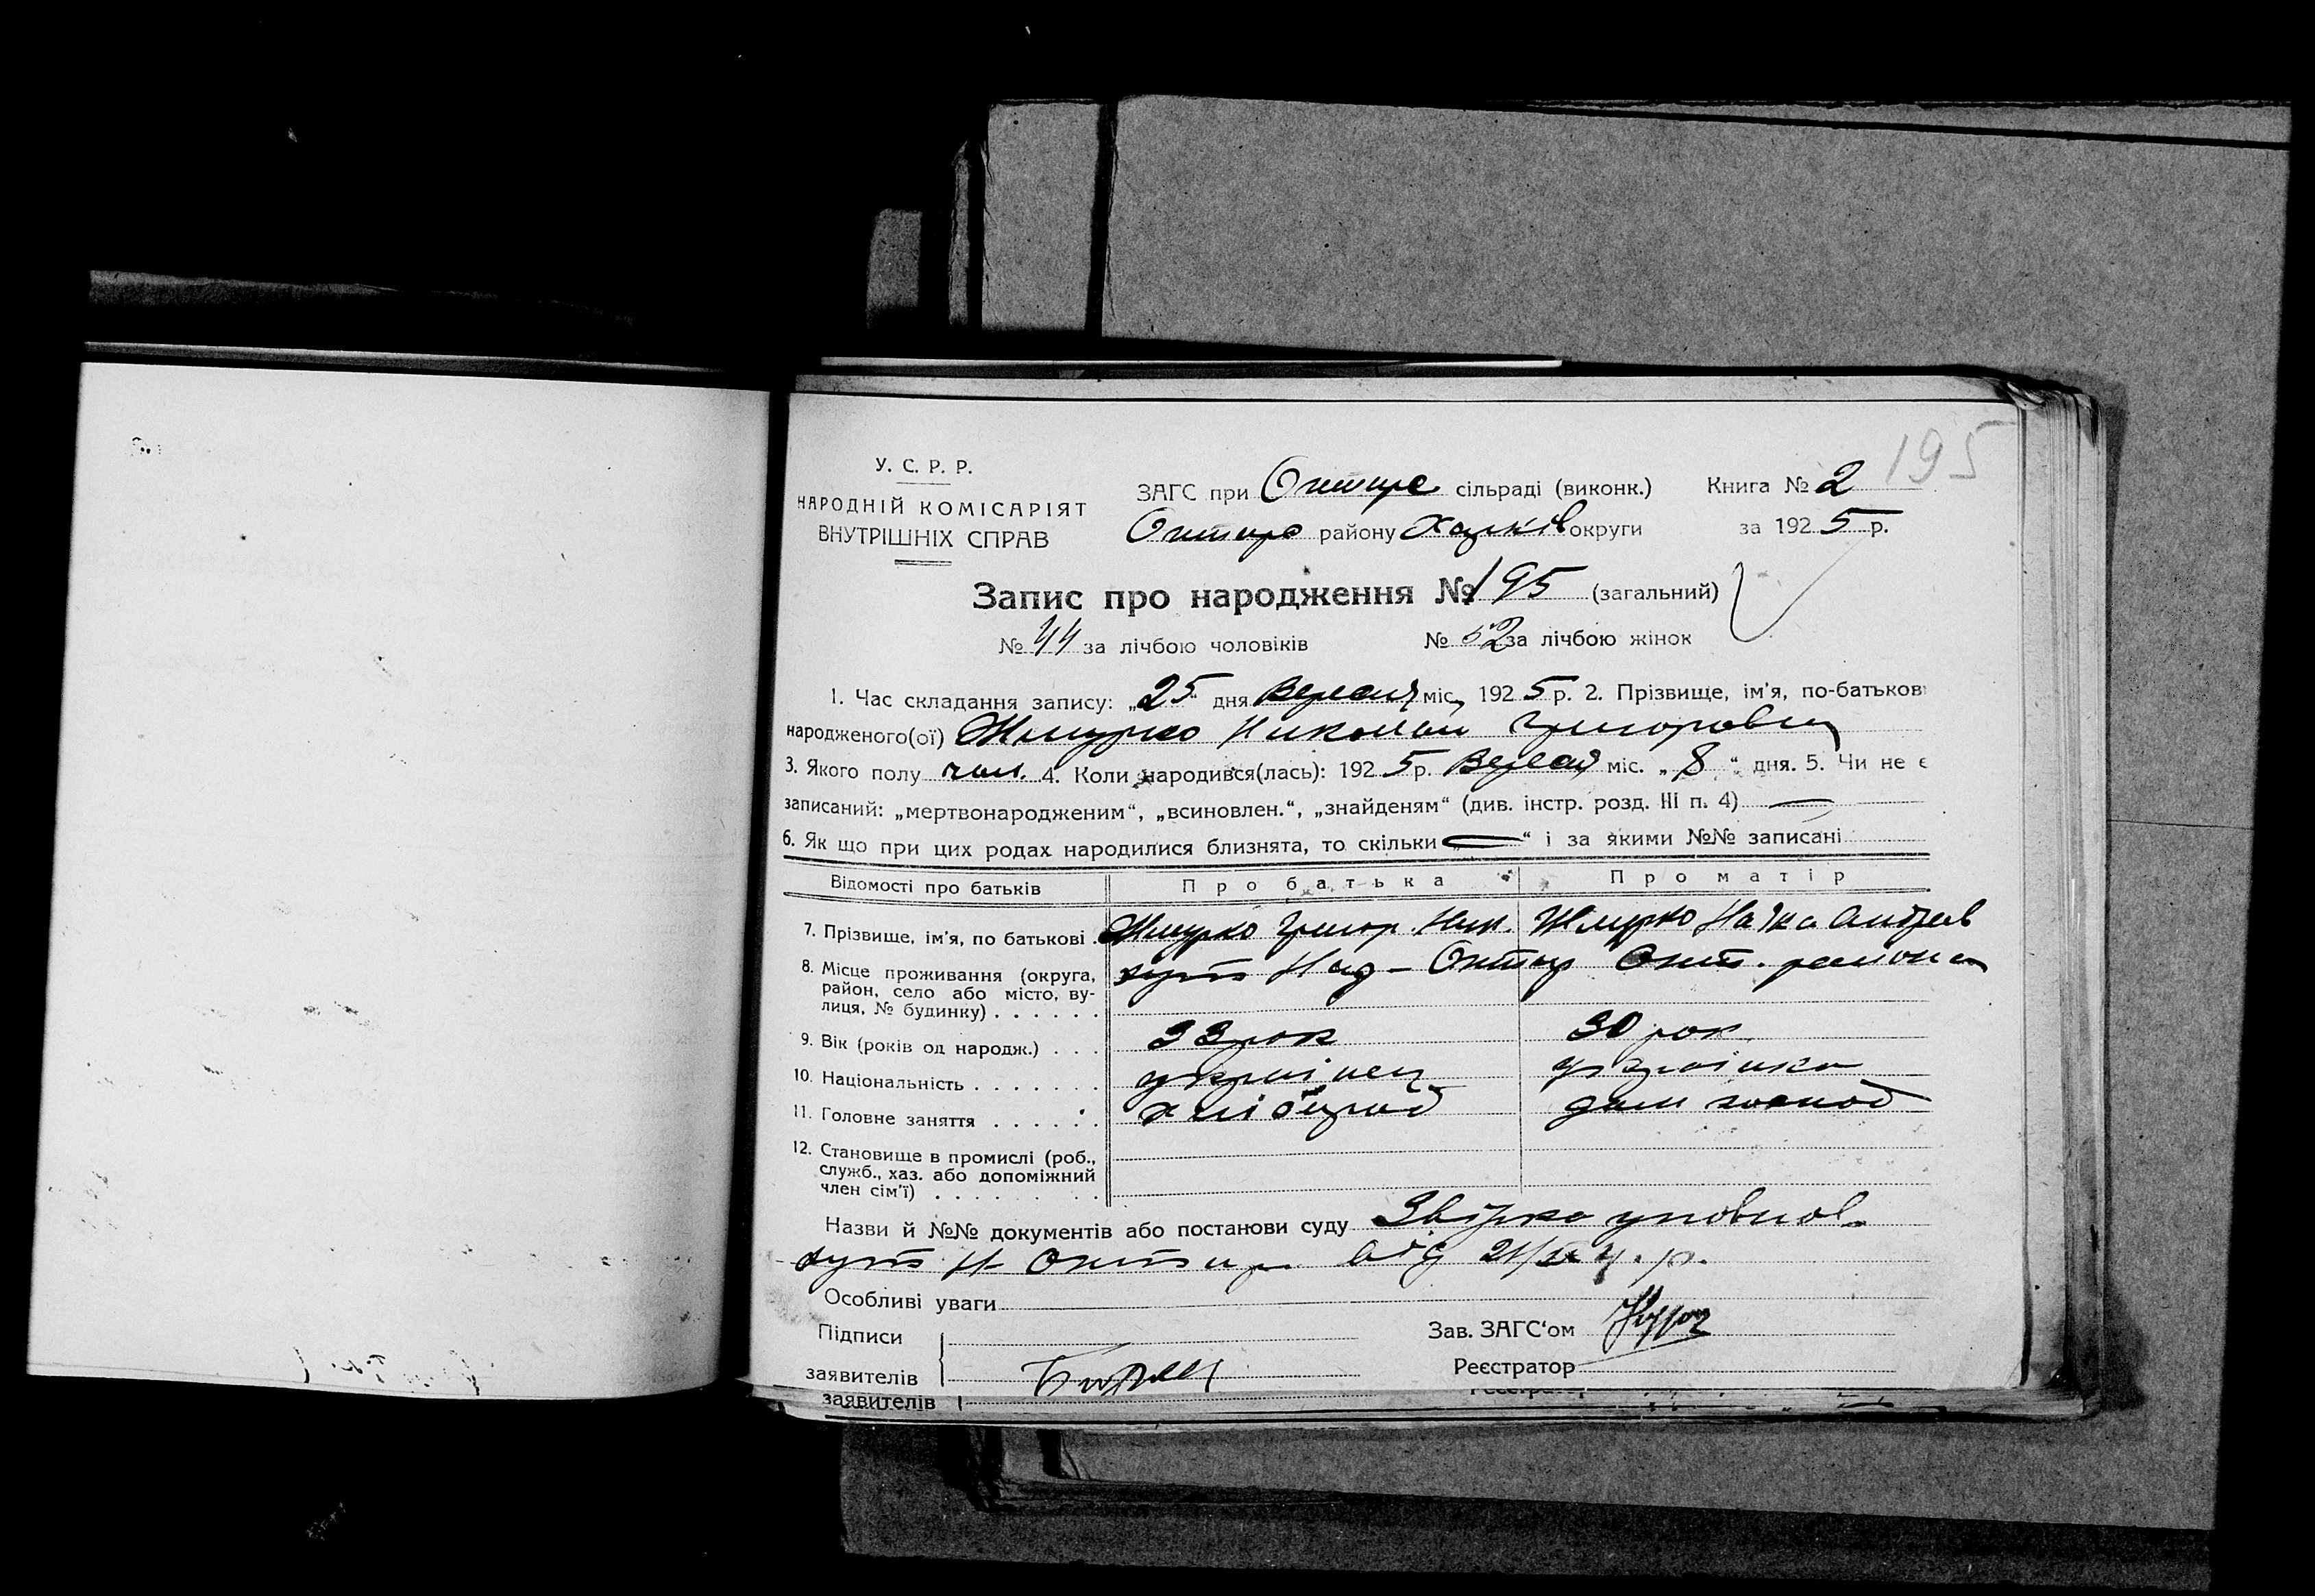 195
У. С. Р. Р.
НАРОДНІЙ КОМІСАРІЯТ
ВНУТРІШНІХ СПРАВ
ЗАГС при сільраді (виконк.) Книга № 2
району Харків округи за 1925 р.
Запис про народження № 195 (загальний)
№ 44 за лічбою чоловіків № 52 за лічбою жінок
1. Час складання запису: „25“ дня Вересня міс. 1925 р. 2. Прізвище, ім'я, по-батькові
народженого(ої) Жмурко Николай Григорович
3. Якого полу чол. 4. Коли народився(лась): 1925 р. Вересня міс. „8“ дня. 5. Чи не є
записаний: „мертвонародженим“, „всиновлен.“, „знайденям“ (див. інстр. розд. III п. 4) —
6. Як що при цих родах народилися близнята, то скільки „—“ і за якими №№ записані
Відомості про батьків Про батька Про матір
7. Прізвище, ім'я, по батькові . Жмурко Григор. Ник. Жмурко Андреев
8. Місце проживання (округа, хут Охт. района
район, село або місто, ву-
лиця, № будинку) . . . . . .
9. Вік (років од народж.) . . . 33 рок 30 рок
10. Національність . . . . . . . українец українка
11. Головне заняття . . . . . . хлібороб дом господ
12. Становище в промислі (роб.,
служб., хаз. або допоміжний
член сім'ї) . . . . . . . . .
Назви й №№ документів або постанови суду уповнов.
хут Н від 21/IX ц. р.
Особливі уваги
Підписи Зав. ЗАГС'ом
заявителів Реєстратор
заявителів